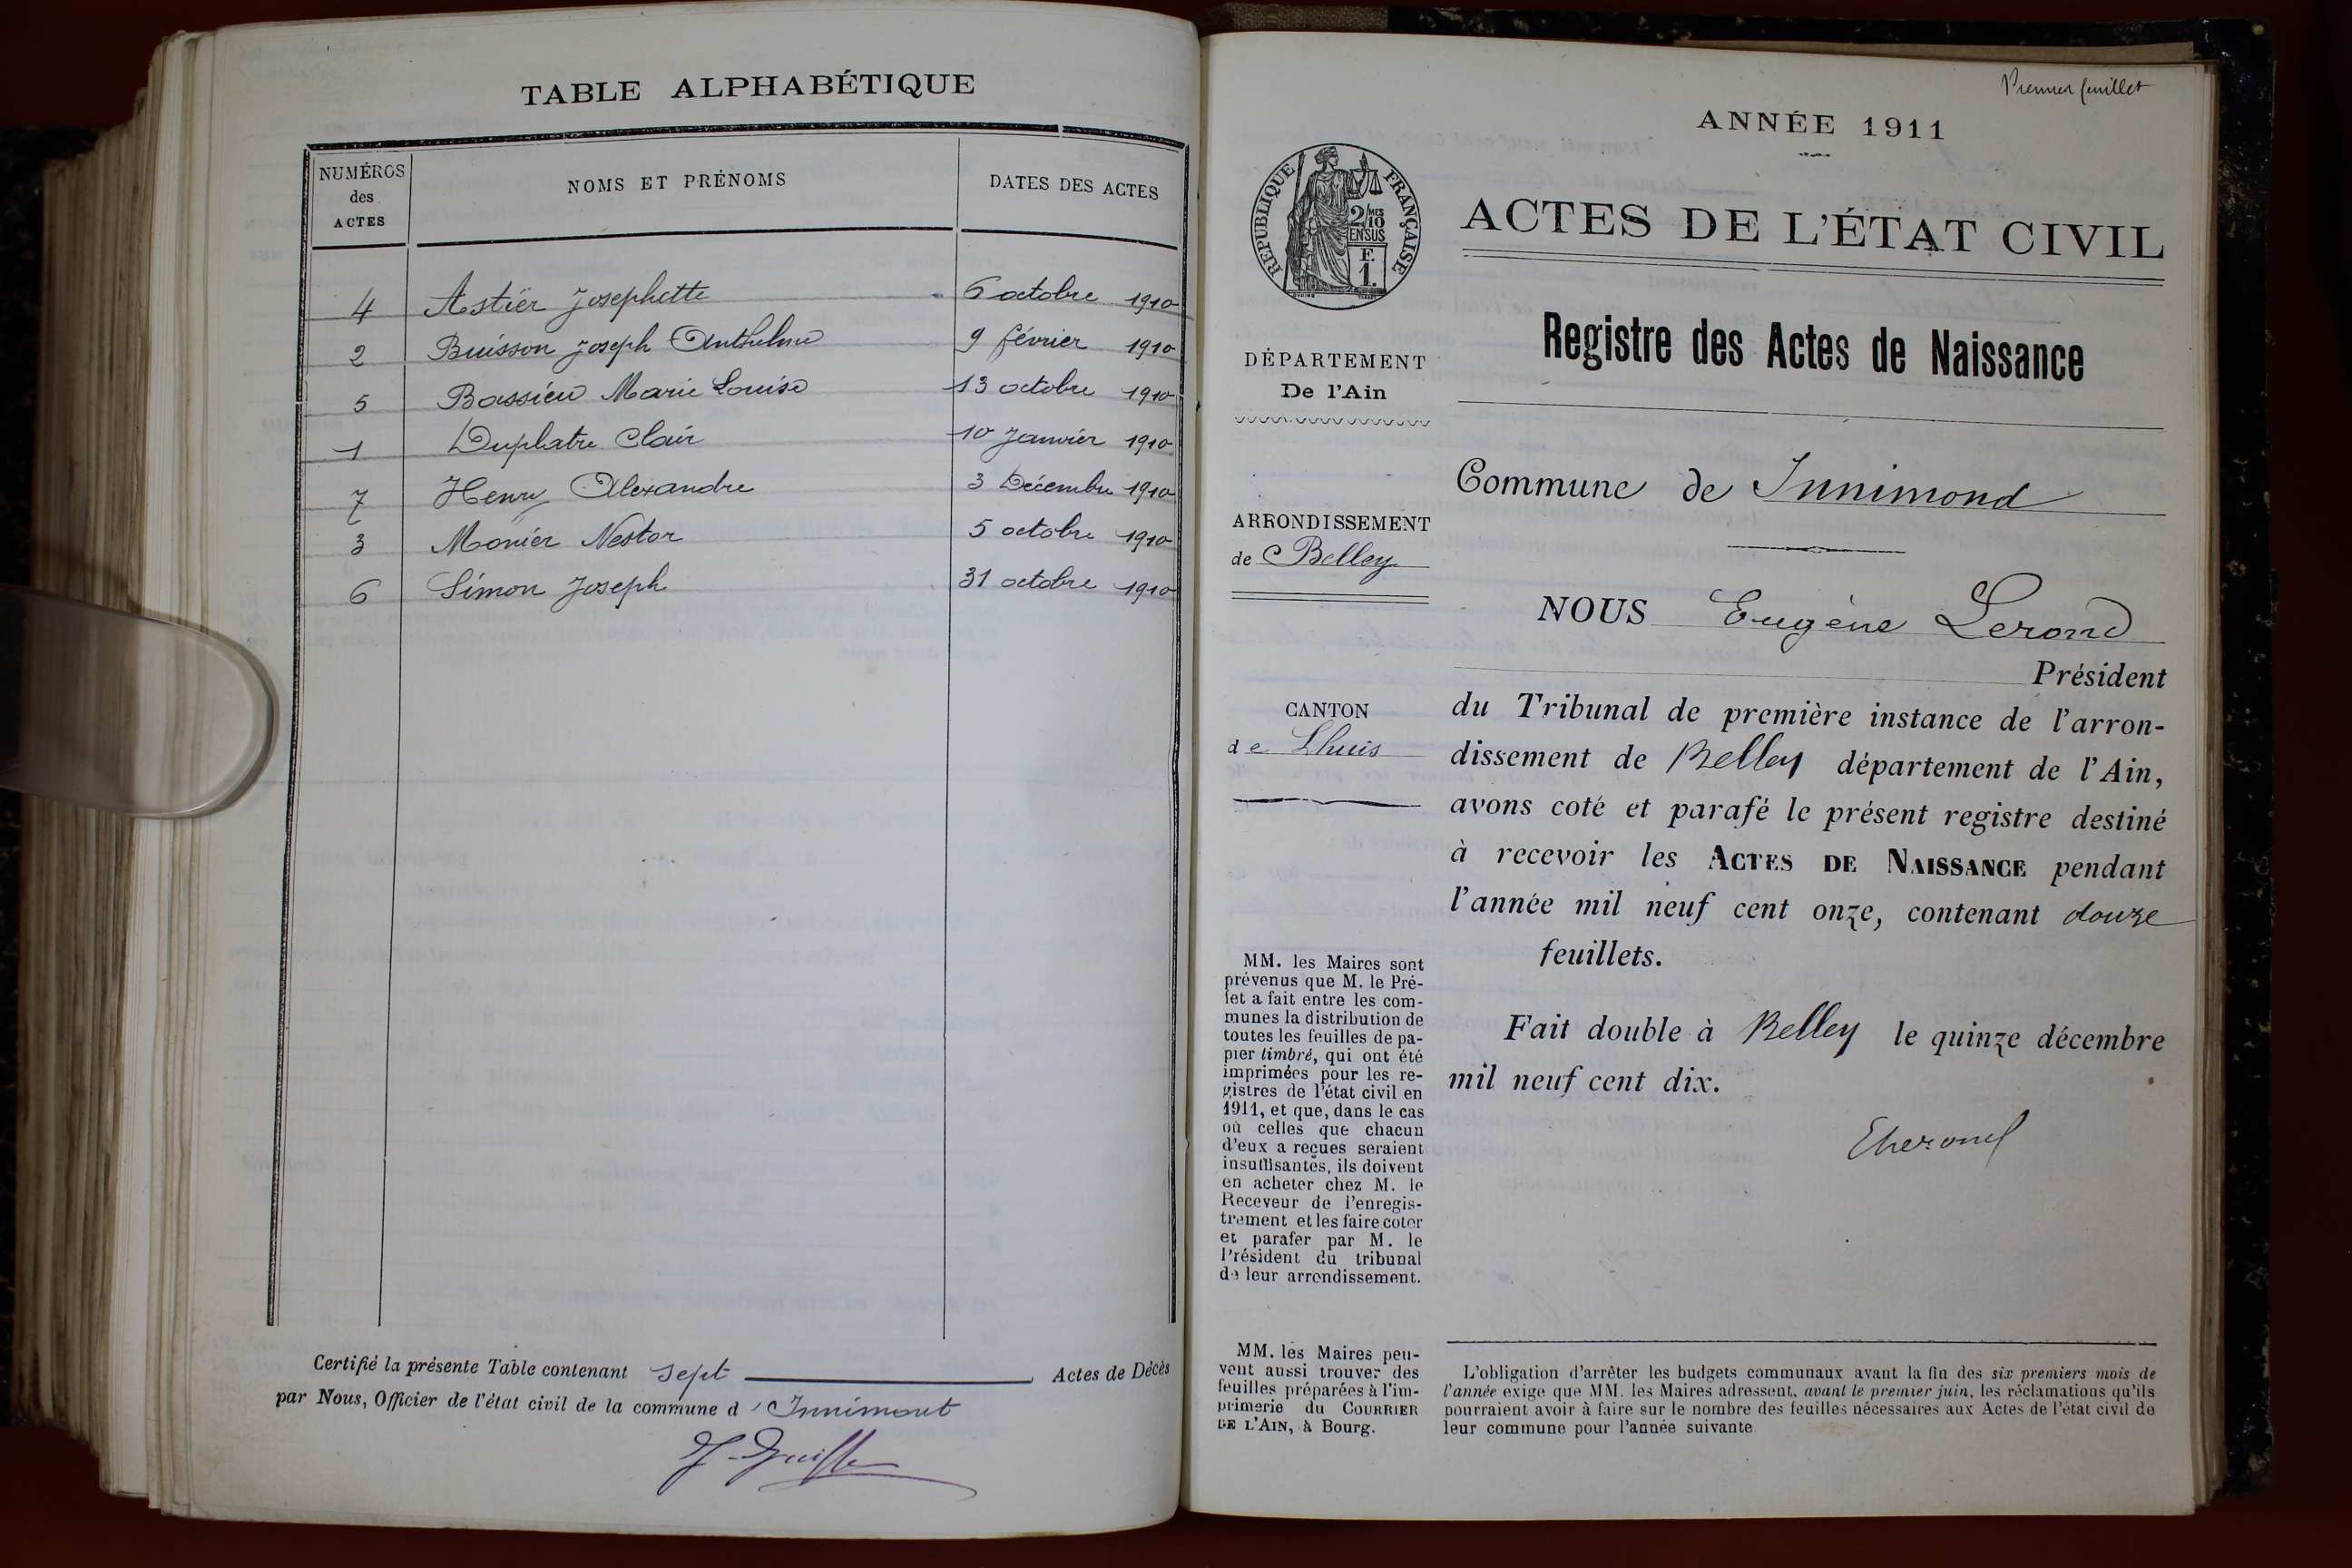 TABLE ALPHABÉTIQUE
NUMÉROS des ACTES
NOMS ET PRÉNOMS
DATES DES ACTES
4 Astier Josephette 6 octobre 1910
2 Buisson Joseph Anthelme 9 février 1910
5 Bassieu Marie Louise 13 octobre 1910
1 Duplatre Clair 10 Janvier 1910
7 Henry Alexandre 3 Décembre 1910
3 Monier Nestor 5 octobre 1910
6 Simon Joseph 31 octobre 1910
Certifié la présente Table contenant sept Actes de Décès
par Nous, Officier de l'état civil de la commune d'Innimont
Premier feuillet
ANNÉE 1911
RÉPUBLIQUE FRANÇAISE
2/10
MES
EN SUS
F.
1.
ACTES DE L'ÉTAT CIVIL
Registre des Actes de Naissance
DÉPARTEMENT
De l'Ain
ARRONDISSEMENT
de Belley
CANTON
de Lhuis
MM. les Maires sont
prévenus que M. le Pré-
fet a fait entre les com-
munes la distribution de
toutes les feuilles de pa-
pier timbré, qui ont été
imprimées pour les re-
gistres de l'état civil en
1911, et que, dans le cas
où celles que chacun
d'eux a reçues seraient
insuffisantes, ils doivent
en acheter chez M. le
Receveur de l'enregis-
trement et les faire coter
et parafer par M. le
Président du tribunal
de leur arrondissement.
MM. les Maires peu-
vent aussi trouver des
feuilles préparées à l'im-
primerie du COURRIER
DE L'AIN, à Bourg.
Commune de Innimond
NOUS Eugène Lerond
Président
du Tribunal de première instance de l'arron-
dissement de Belley département de l'Ain,
avons coté et parafé le présent registre destiné
à recevoir les ACTES DE NAISSANCE pendant
l'année mil neuf cent onze, contenant douze
feuillets.
Fait double à Belley le quinze décembre
mil neuf cent dix.
L'obligation d'arrêter les budgets communaux avant la fin des six premiers mois de
l'année exige que MM. les Maires adressent, avant le premier juin, les réclamations qu'ils
pourraient avoir à faire sur le nombre des feuilles nécessaires aux Actes de l'état civil de
leur commune pour l'année suivante